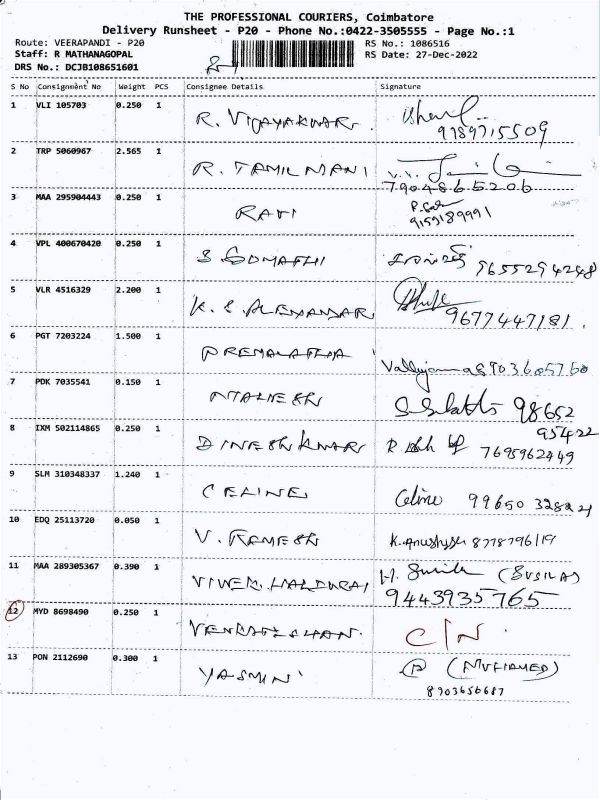 THE PROFESSIONAL COURIERS, Coimbatore
Delivery Runsheet - P20 - Phone No.:0422-3505555 - Page No.:1
Route: VEERAPANDI - P20 RS No.: 1086516
Staff: R MATHANAGOPAL RS Date: 27-Dec-2022
DRS No.: DCJB108651601
S No Consignment No Weight PCS Consignee Details Signature
1 VLI 105703 0.250 1 R. VIJAYAKUMAR
9189715509
2 TRP 5060967 2.565 1 R. TAMILMANI
7904865206
3 MAA 295904443 0.250 1 RAVI
9159189991
4 VPL 400670420 0.250 1 S GOMATHI 9655294248
5 VLR 4516329 2.200 1 K. S. ALEXANDAR
9677447181
6 PGT 7203224 1.500 1 PREMALATHA
7 PDK 7035541 0.150 1 98652
95422
8 IXM 502114865 0.250 1 DINESHKUMAR 7695962449
9 SLM 310348337 1.240 1 CELINE Celine
10 EDQ 25113720 0.050 1 V. RAMESH 8778796119
11 MAA 289305367 0.390 1 (SUSILA)
9443935765
12 MYD 8698490 0.250 1 C/N
13 PON 2112690 0.300 1 YASMIN (MUHAMED)
8903656687